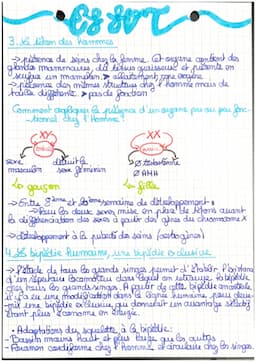 CS SVT
3. Le téton des hommes
→ présence de seins chez la femme. Cet organe contient des
glandes mammaires, du tissu graisseux et présente en
surface un mamelon → allaitement
→ présence des mêmes structures chez l'homme mais de
taille différente → pas de fonction
Comment expliquer la présence d'un organe peu ou pas fonc-
tionnel chez l'Homme?
XY XX
sexe détruit le Ø testostérone
masculin sexe féminin Ø AMH
Le garçon La fille
→ Entre 8ème et semaine de développement :
→ tous les deux sexes, mise en place de tétons avant
la différenciation des sexes à partir des gènes du chromosome X
→ développement à la puberté des seins (œstrogènes)
4. La bipédie humaine, une bipédie exclusive
→ L'étude de tous les grands singes permet d'établir l'
d'un locomoteur dans lequel on retrouve la bipédie
chez tous les grands singes. A partir de cette bipédie
il y a eu une modification dans la lignée humaine, pour deve-
nir une bipédie exclusive, qui donnerait un avantage sélectif
étant plus économe en énergie.
• Adaptations du squelette à la bipédie :
- Bassin moins haut et plus large que les autres
- Foramen chez l'homme et chez les singes.